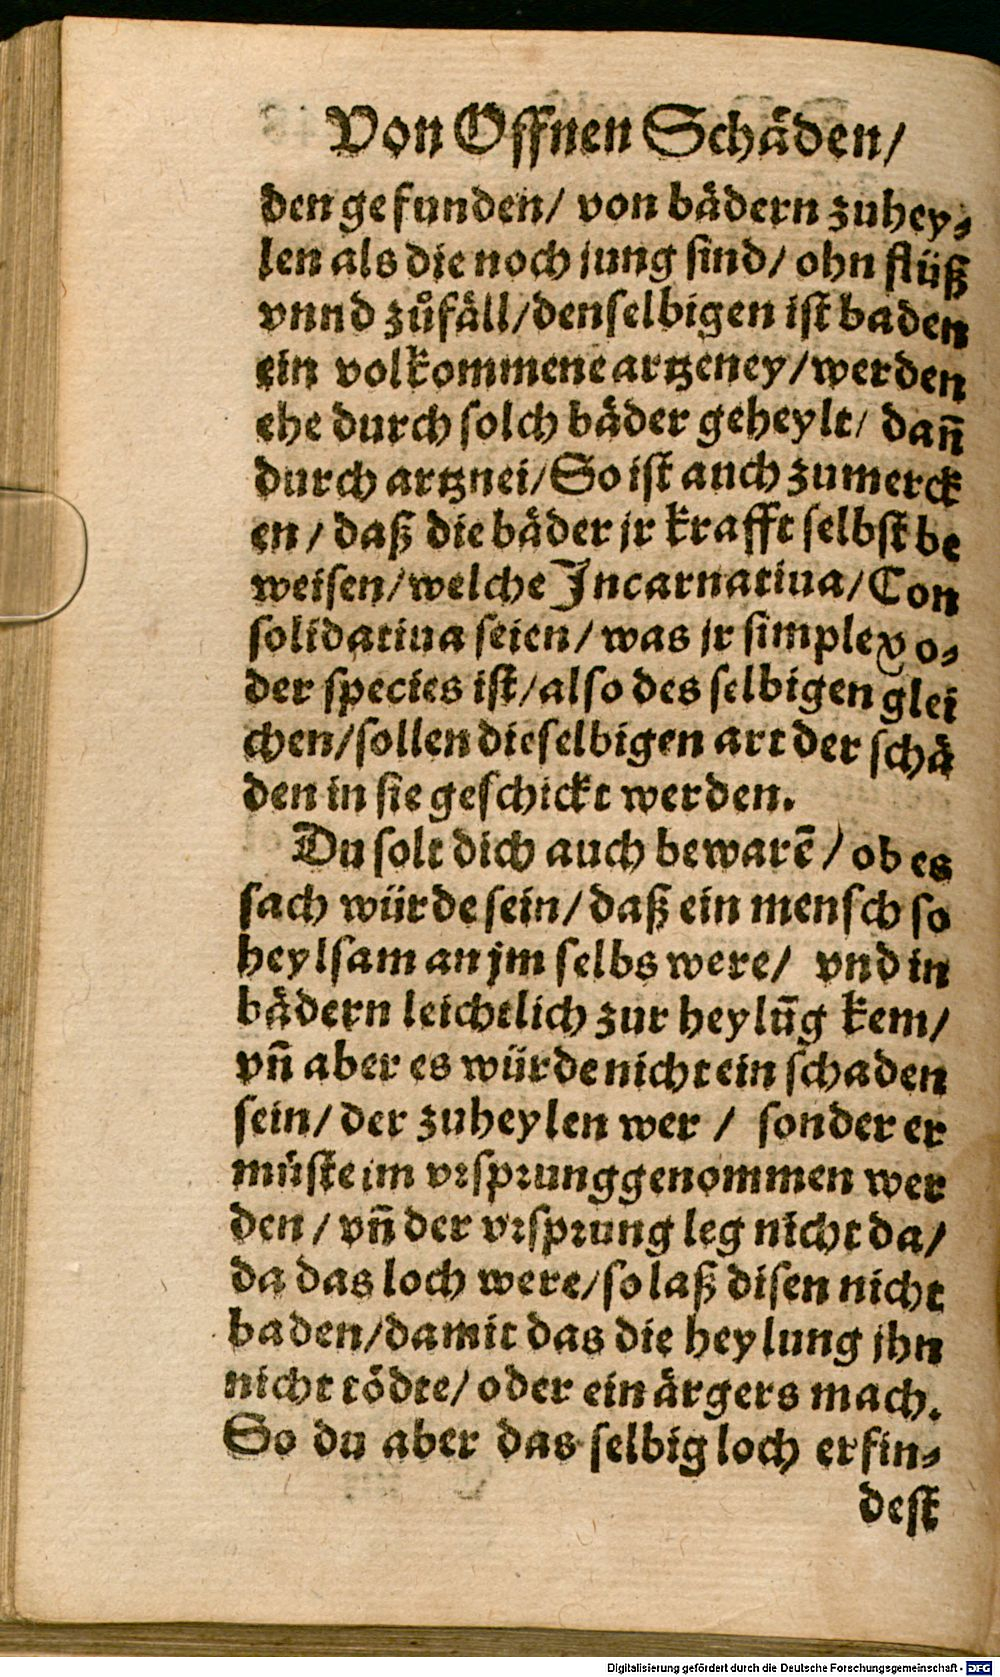 Von Offnen Schäden/
den gefunden/ von bädern zuhey⸗
len als die noch jung sind/ ohn flüß
vnnd zůfäll/denselbigen ist baden
ein volkommene artzeney/werden
ehe durch solch bäder geheylt/ dañ
durch artznei/So ist auch zumerck
en/ daß die bäder jr krafft selbst be
weisen/welche Incarnatiua/Con
solidatiua seien/was jr simplex o⸗
der species ist/also des selbigen glei
chen/sollen dieselbigen art der schä
den in sie geschickt werden.
Du solt dich auch bewarẽ/ob es
sach würde sein/daß ein mensch so
heylsam an jm selbs were/ vnd in
bädern leichtlich zur heylũg kem/
vñ aber es würde nicht ein schaden
sein/der zuheylen wer / sonder er
müste im vrsprung genommen wer
den/vñ der vrsprung leg nicht da/
da das loch were/so laß disen nicht
baden/damit das die heylung jhn
nicht tödte/oder ein ärgers mach.
So du aber das selbig loch erfin⸗
dest
Digitalisierung gefördert durch die Deutsche Forschungsgemeinschaft - DFG